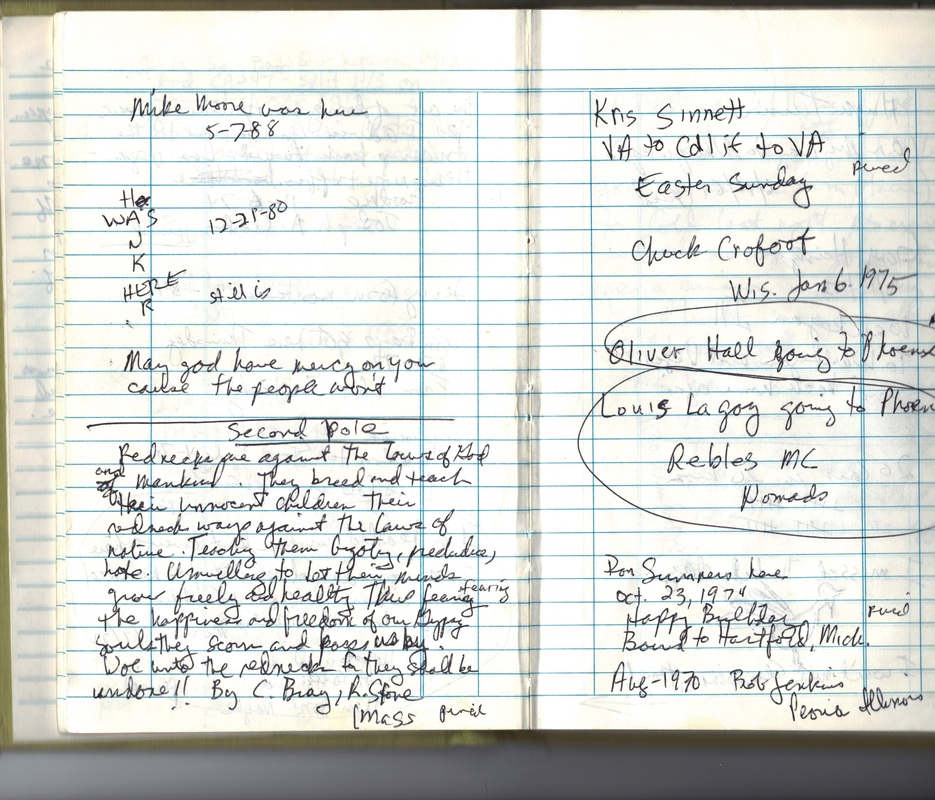 Mike Moore was here
5-7-88
He
WAS
N
K
HERE
R
12-21-80
still is
May god have mercy on you
cause the people won't
Second Pole
Rednecks are against the Laws of God
and mankind. They breed and teach
their innocent children their
redneck ways against the Laws of
nature. Teaching them bigotry, predudice,
hate. Unwilling to let their minds
grow freely and healthy Thus fearing
the happiness and freedom of our Gypsy
souls they scorn and pass us by.
Woe unto the redneck for they shall be
undone!! By C. Bray, R. Stone
(Mass
Kris Sinnett
VA to Calif to VA
Easter Sunday
Chuck Crofoot
Wis. Jan 6. 1975
Oliver Hall going to Phoenix
Louis Lagoy going to Phoen
Rebles MC
Nomads
Ron Summers here
Oct. 23, 1974
Happy Birthday
Bound to Hartford, Mich.
Aug-1970 Bob Jenkins
Peoria Illinois